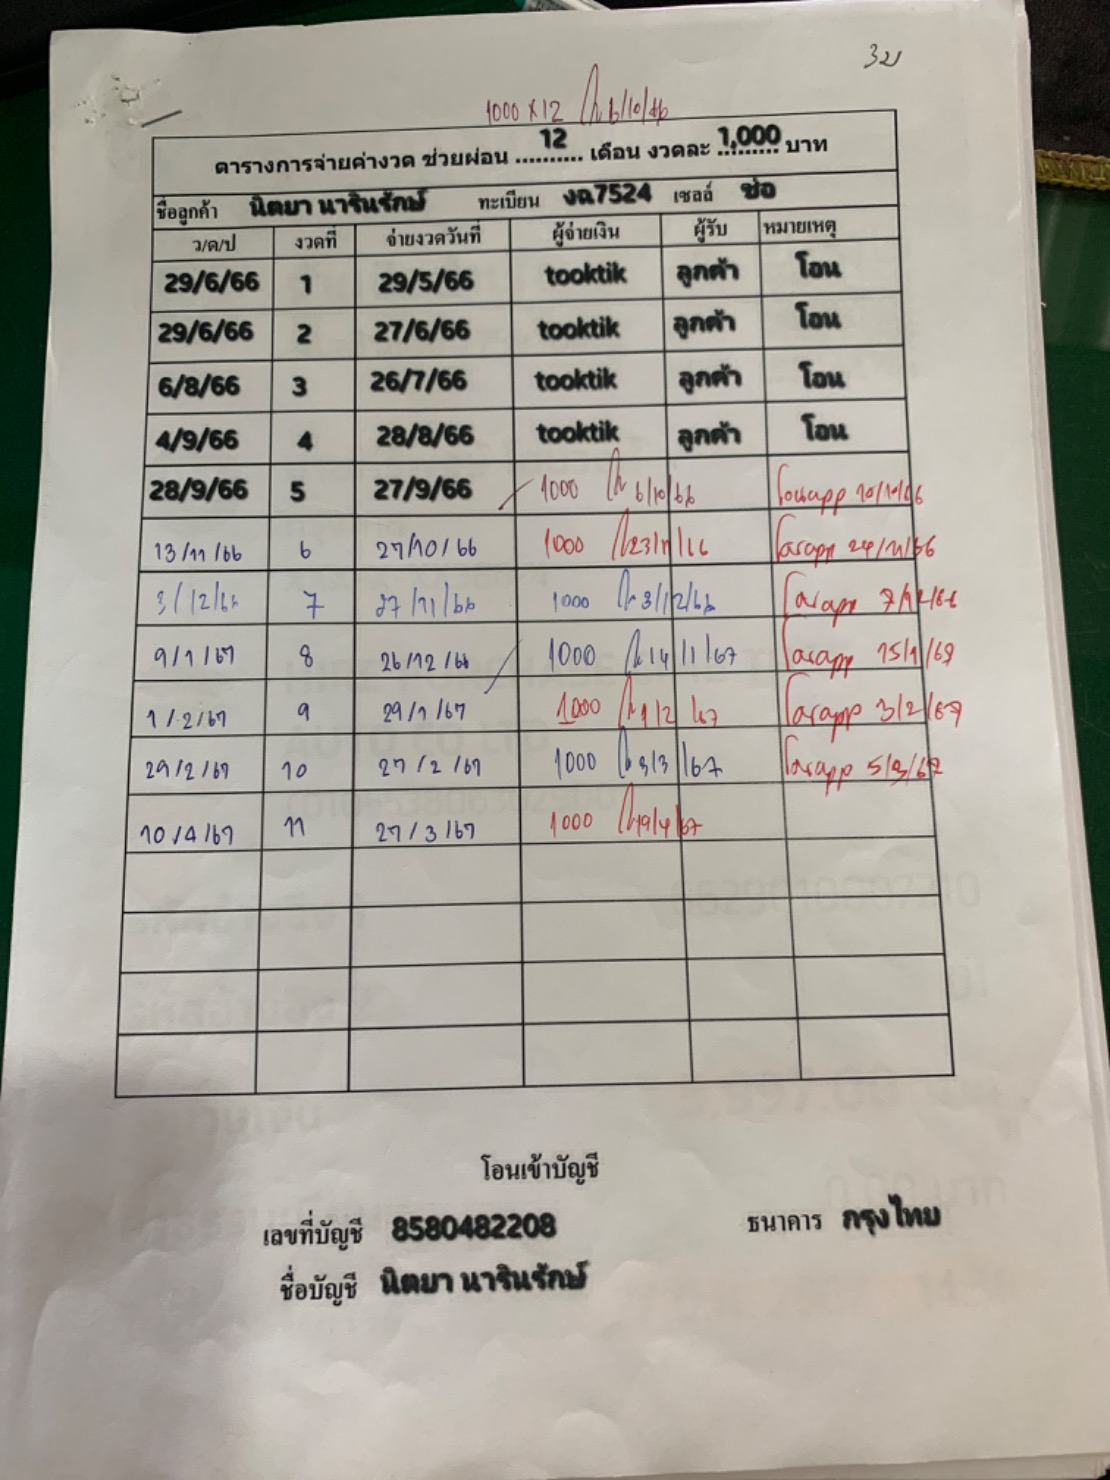 1000 x 12 6/10/66
ตารางการจ่ายค่างวด ช่วยผ่อน ....12.... เดือน งวดละ ..1,000.. บาท
ชื่อลูกค้า นิตยา นารินรักษ์ ทะเบียน งฉ7524 เซลล์ ช่อ
ว/ด/ป งวดที่ จ่ายงวดวันที่ ผู้จ่ายเงิน ผู้รับ หมายเหตุ
29/6/66 1 29/5/66 tooktik ลูกค้า โอน
29/6/66 2 27/6/66 tooktik ลูกค้า โอน
6/8/66 3 26/7/66 tooktik ลูกค้า โอน
4/9/66 4 28/8/66 tooktik ลูกค้า โอน
28/9/66 5 27/9/66 1000 6/10/66 โอนapp 10/10/66
13/11/66 6 27/10/66 1000 23/11/66 โอนapp 24/11/66
3/12/66 7 27/11/66 1000 3/12/66 โอนapp 7/12/66
9/1/67 8 26/12/66 1000 14/1/67 โอนapp 15/1/67
1/2/67 9 29/1/67 1000 1/2/67 โอนapp 3/2/67
29/2/67 10 27/2/67 1000 3/3/67 โอนapp 5/3/67
10/4/67 11 27/3/67 1000 19/4/67
โอนเข้าบัญชี
เลขที่บัญชี 8580482208 ธนาคาร กรุงไทย
ชื่อบัญชี นิตยา นารินรักษ์